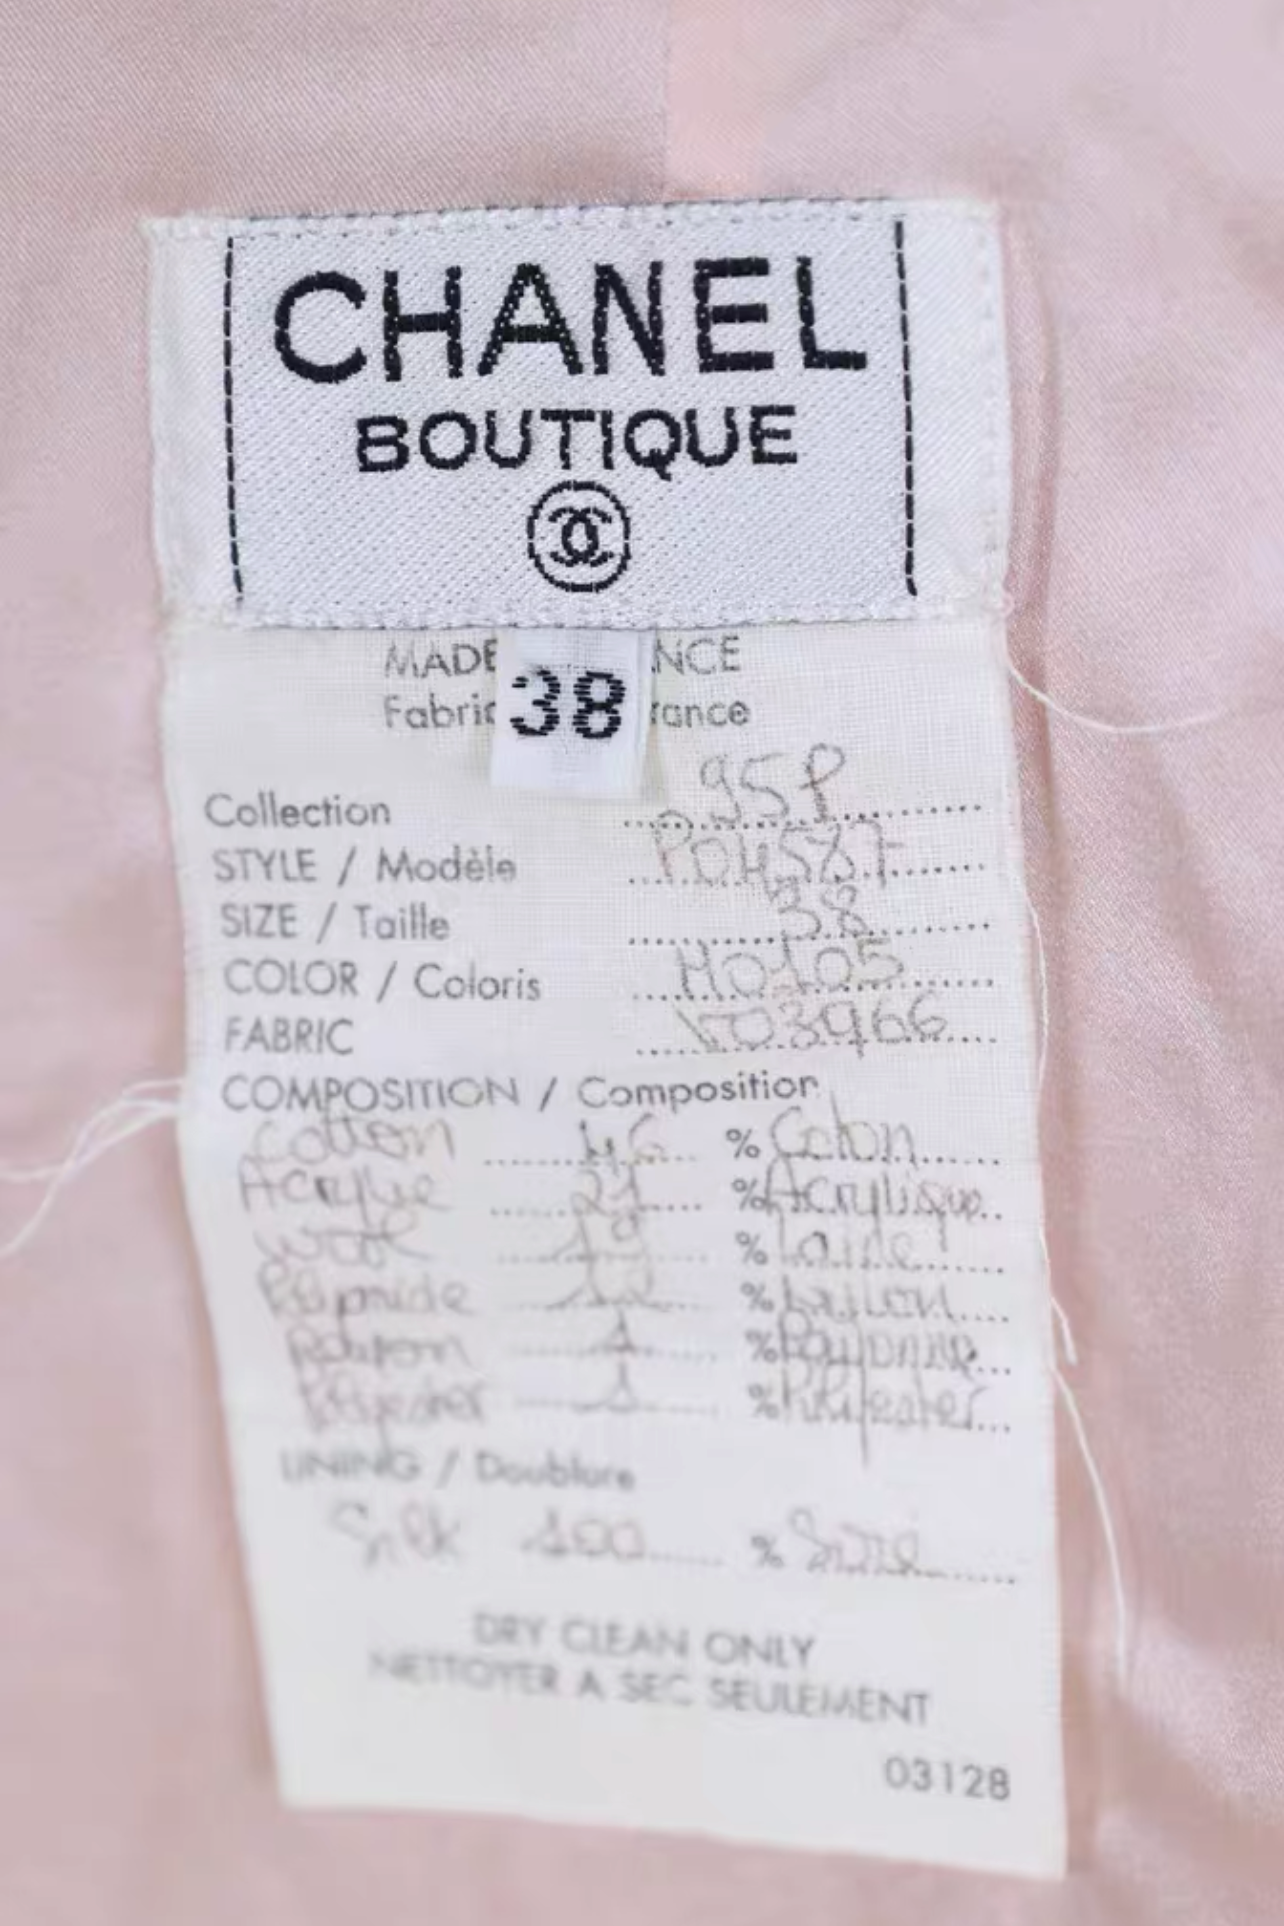 CHANEL
BOUTIQUE
MADE NCE
38
Fabric rance
Collection 95P
STYLE / Modèle P04587
SIZE / Taille 38
COLOR / Coloris H0105
FABRIC V03966
COMPOSITION / Composition
Cotton 46 % Coton
Acrylic 21 % Acrylique
Wool 19 % Laine
12 %
Rayon 1 % Rayonne
Polyester 1 % Polyester
LINING / Doublure
Silk 100 % Soie
DRY CLEAN ONLY
NETTOYER A SEC SEULEMENT
03128